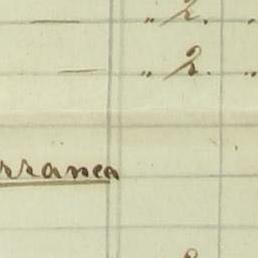 — „ 2. „
— „ 2. „
rranea